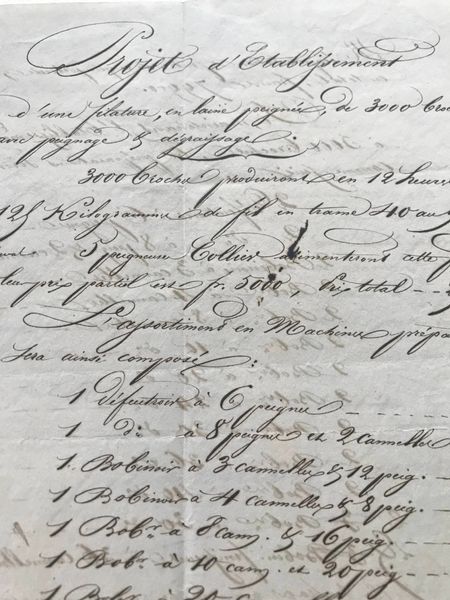 Projet d'Etablissement
d'une filature, en laine peignée, de 3000 broc
avec peignage & dégraissage.
3000 broches produiront en 12 heures
125 Kilogrammes de fil en trame 40 au
5 peigneuses Collier alimenteront cette
leur prix partiel est fr. 5000, Prix total
L'assortiment en Machines prépa
sera ainsi composé :
1 défeutroir à 6 peignes
1 do à 8 peignes et 2 cannelles
1 Bobinoir à 3 cannelles & 12 peig.
1 Bobinoir à 4 cannelles & 8 peig.
1 Bobr. à 8 can. & 16 peig.
1 Bobr. à 10 can. et 20 peig.
1 Bobr. à 20